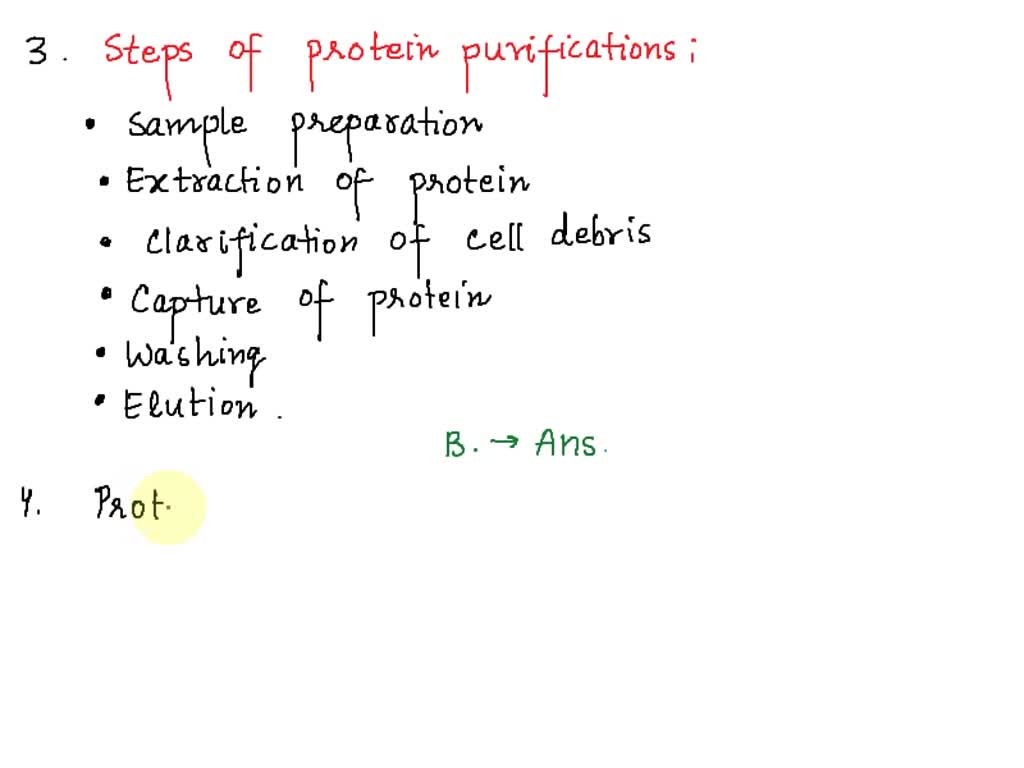 3. Steps of protein purifications:
• Sample preparation
• Extraction of protein
• Clarification of cell debris
• Capture of protein
• Washing
• Elution.
B. → Ans.
4. Prot.